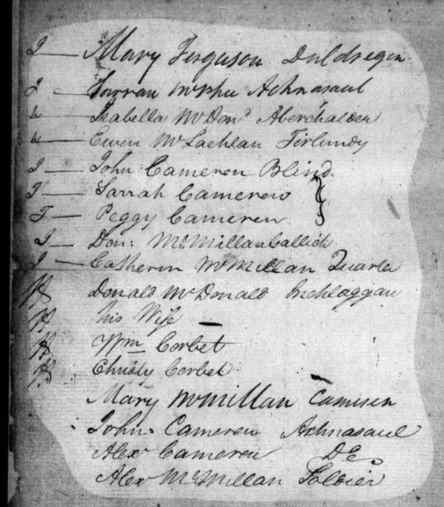 I — Mary Ferguson Duldregin
I — Sarrah McPhee Achnasaul
u — Isabella McDond Aberchalder
u — Ewen McLachlan Tirlundy
I — John Cameron Blind
I — Sarrah Cameron
I — Peggy Cameron
I — Don: McMillan Callich
I — Catherin McMillan Quarle
Donald McDonald
his Wife —
Wm Corbet
Christy Corbet
Mary McMillan Camisen
John Cameron Achnasaul
Alexr Cameron Do
Alexr McMillan Soldier